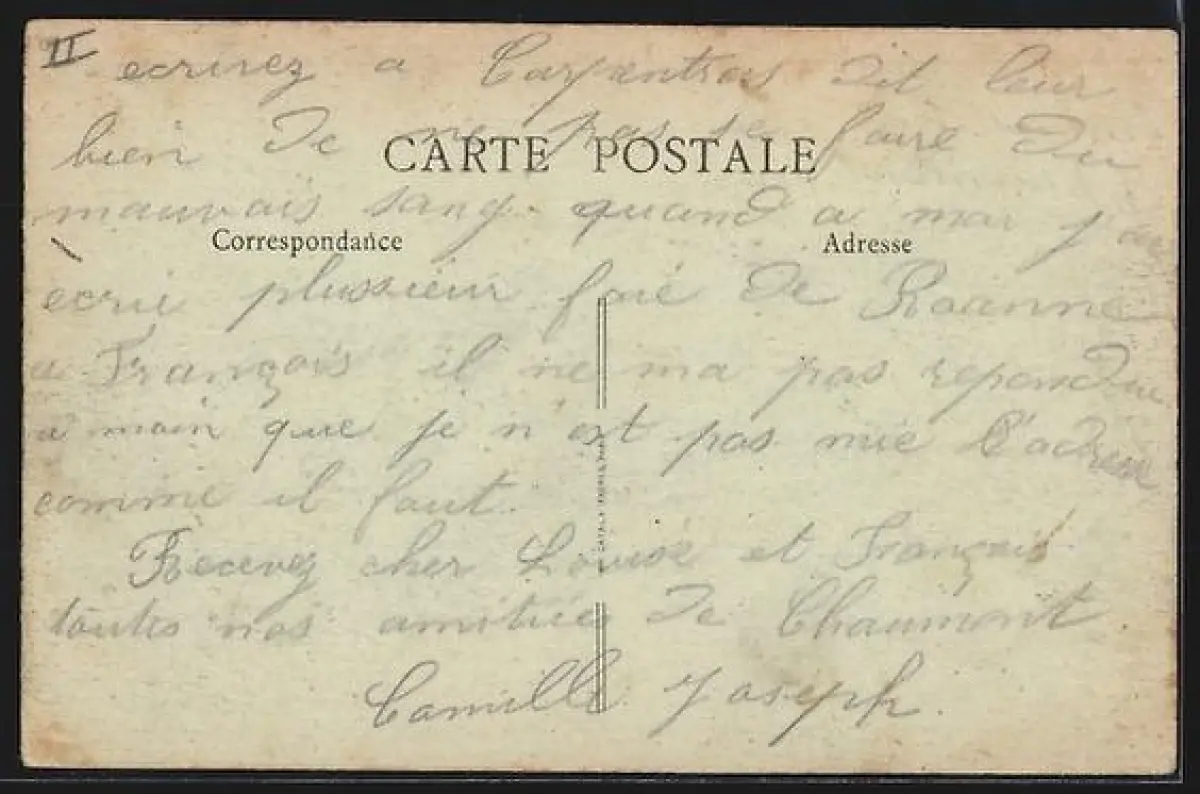 II
ecrivez a Carpentras dit leur
bien de ne pas se faire du
CARTE POSTALE
mauvais sang. quand a moi j'ai
Correspondance Adresse
ecrie plusieur foie de Roanne
a François il ne ma pas repondue
a main que je n'est pas mie l'adresse
comme il faut.
Recevez cher Louise et François
toutes nos amitiées de Chaumont.
Camille Joseph.